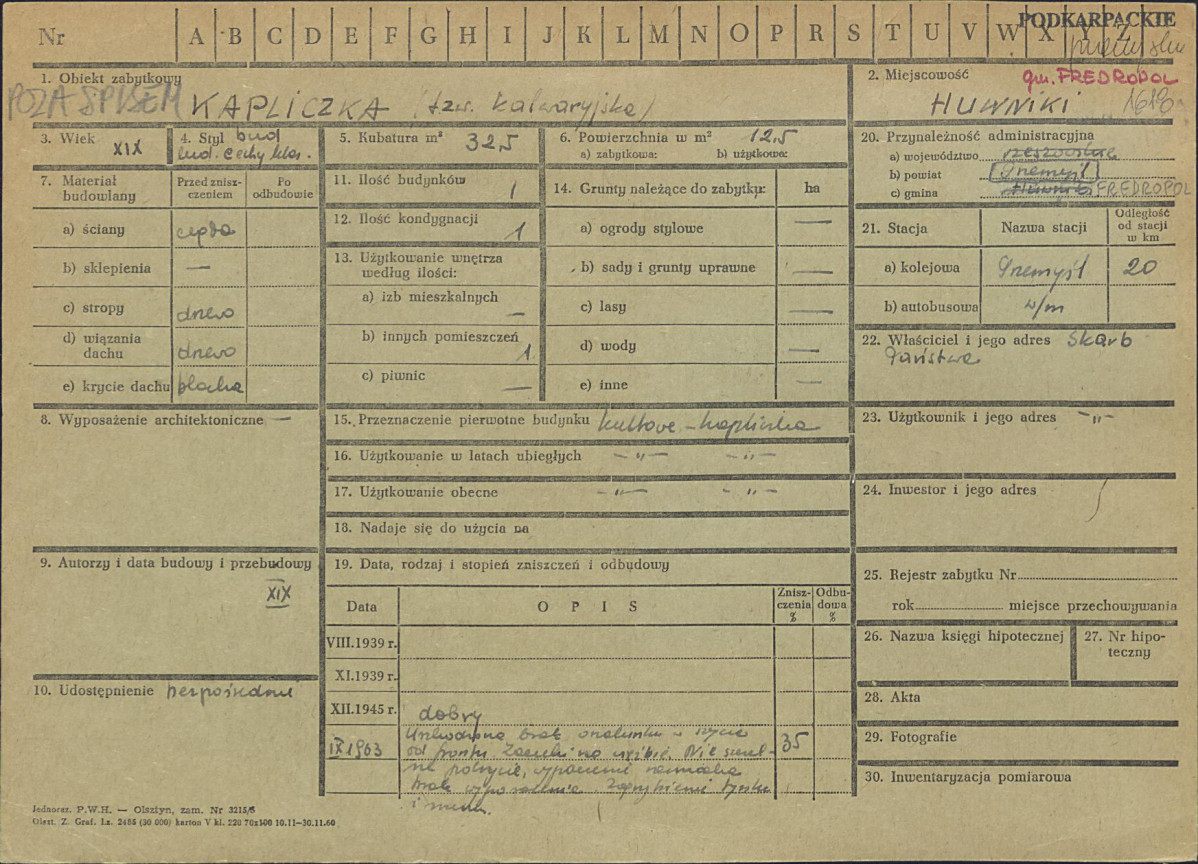 Nr A B C D E F G H I J K L M N O P R S T U V W X Y Z
PODKARPACKIE
1. Obiekt zabytkowy
POZA SPISEM KAPLICZKA (tzw. kalwaryjska)
2. Miejscowość gm. FREDROPOL
HUWNIKI
3. Wiek XIX
4. Styl bud
lud. cechy klas.
5. Kubatura m³ 32,5
6. Powierzchnia w m² 12,5
a) zabytkowa: b) użytkowa:
7. Materiał budowlany
Przed znisz-
czeniem
Po
odbudowie
a) ściany cegła
b) sklepienia —
c) stropy drewo
d) wiązania
dachu drewo
e) krycie dachu blacha
8. Wyposażenie architektoniczne —
9. Autorzy i data budowy i przebudowy
XIX
10. Udostępnienie bezpośrednie
11. Ilość budynków 1
12. Ilość kondygnacji 1
13. Użytkowanie wnętrza
według ilości:
a) izb mieszkalnych —
b) innych pomieszczeń 1
c) piwnic —
14. Grunty należące do zabytku: ha
a) ogrody stylowe —
b) sady i grunty uprawne —
c) lasy —
d) wody —
e) inne —
15. Przeznaczenie pierwotne budynku kultowe – kapliczka
16. Użytkowanie w latach ubiegłych —"— —"—
17. Użytkowanie obecne —"— —"—
18. Nadaje się do użycia na
19. Data, rodzaj i stopień zniszczeń i odbudowy
Data OPIS
Znisz-
czenia
%
Odbu-
dowa
%
VIII.1939 r.
XI.1939 r.
XII.1945 r. dobry
IX 1963 brak 35
od frontu. Nie szczel-
ne pokrycie,
brak wyposażenia. tynku
20. Przynależność administracyjna
a) województwo rzeszowskie
b) powiat Przemyśl
c) gmina Huwniki FREDROPOL
21. Stacja Nazwa stacji
Odległość
od stacji
w km
a) kolejowa Przemyśl 20
b) autobusowa w/m
22. Właściciel i jego adres Skarb
Państwa
23. Użytkownik i jego adres —"—
24. Inwestor i jego adres
25. Rejestr zabytku Nr
rok miejsce przechowywania
26. Nazwa księgi hipotecznej
27. Nr hipo-
teczny
28. Akta
29. Fotografie
30. Inwentaryzacja pomiarowa
Jednoraz. P.W.H. — Olsztyn, zam. Nr 3215/S
Olszt. Z. Graf. Lz. 2486 (30 000) karton V kl. 220 70x100 10.11—30.11.60